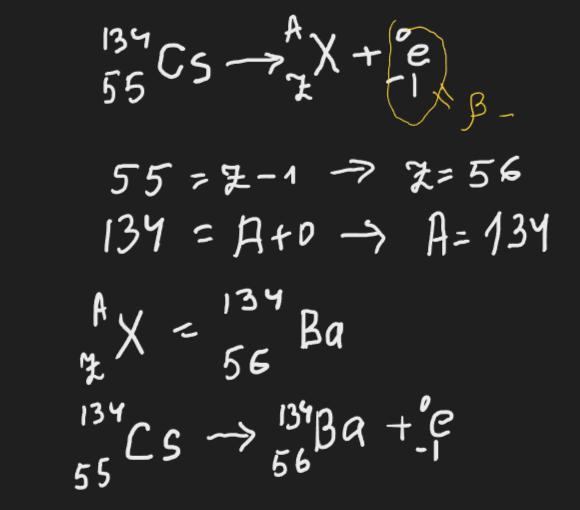 ¹³⁴₅₅Cs → ᴬ_Z X + ⁰₋₁e β -
55 = Z - 1 → Z = 56
134 = A + 0 → A = 134
ᴬ_Z X = ¹³⁴₅₆ Ba
¹³⁴₅₅Cs → ¹³⁴₅₆Ba + ⁰₋₁e